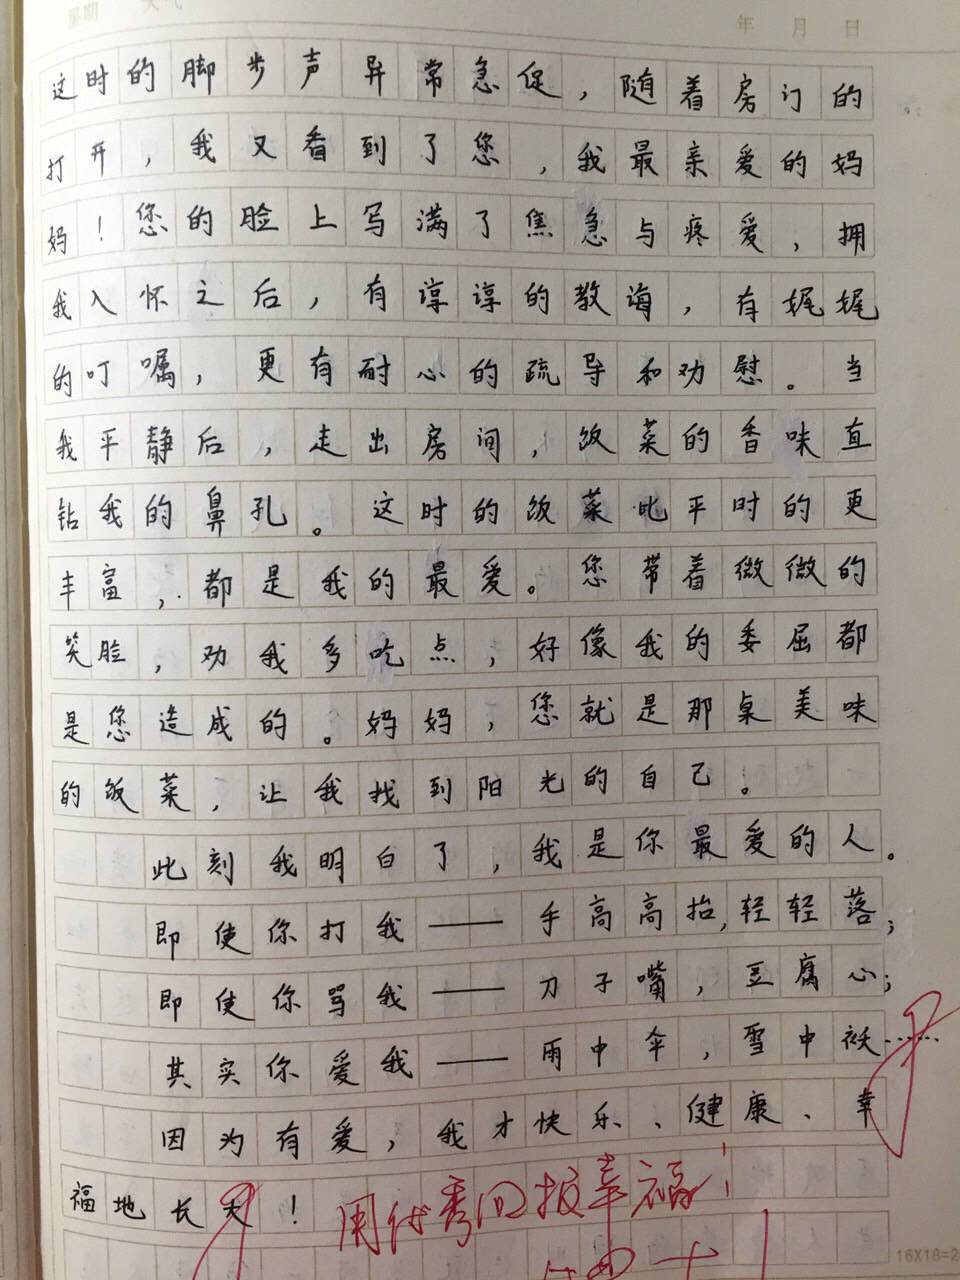 星期
年 月 日
这时的脚步声异常急促，随着房门的
打开，我又看到了您，我最亲爱的妈
妈！您的脸上写满了焦急与疼爱，拥
我入怀之后，有谆谆的教诲，有娓娓
的叮嘱，更有耐心的疏导和劝慰。当
我平静后，走出房间，饭菜的香味直
钻我的鼻孔。这时的饭菜比平时的更
丰富，都是我的最爱。您带着微微的
笑脸，劝我多吃点，好像我的委屈都
是您造成的。妈妈，您就是那桌美味
的饭菜，让我找到阳光的自己。
此刻我明白了，我是你最爱的人。
即使你打我——手高高抬，轻轻落；
即使你骂我——刀子嘴，豆腐心；
其实你爱我——雨中伞，雪中袄……
因为有爱，我才快乐、健康、幸
福地长大！
用优秀回报幸福！
16X18=2